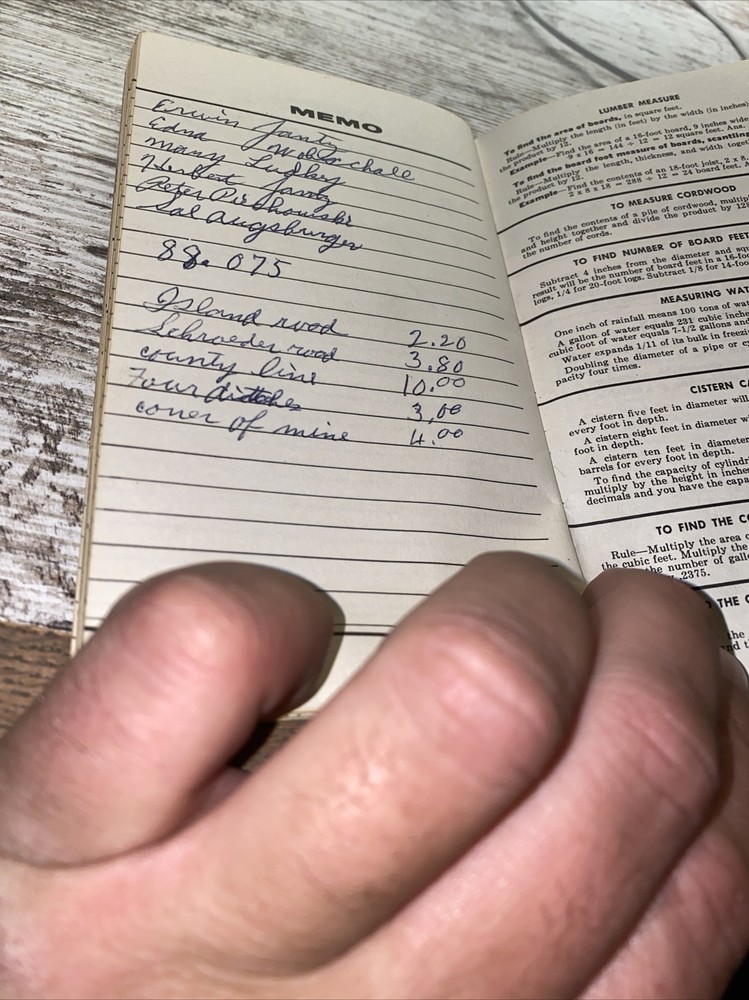 MEMO
Erwin Jantz
Edna Wollschall
Mary Ludkey
Herbert Jantz
Peter
Sal Augsburger
88.075
Island road 2.20
Schroeder road 3.80
county line 10.00
Four ditches 3,00
coner of mine 4.00
LUMBER MEASURE
To find the area of boards, in square feet.
Rule—Multiply the length (in feet) by the width (in inches)
the product by 12.
Example—Find the area of a 16-foot board, 9 inches wide
9 x 16 = 144 ÷ 12 = 12 square feet. Ans.
To find the board foot measure of boards, scantlin
Rule—Multiply the length, thickness, and width toget
the product by 12.
Example—Find the contents of an 18-foot joist, 2 x 8
2 x 8 x 18 = 288 ÷ 12 = 24 board feet. A
TO MEASURE CORDWOOD
To find the contents of a pile of cordwood, multipl
and height together and divide the product by 128
the number of cords.
TO FIND NUMBER OF BOARD FEET
Subtract 4 inches from the diameter and squ
result will be the number of board feet in a 16-foo
logs, 1/4 for 20-foot logs. Subtract 1/8 for 14-foo
MEASURING WAT
One inch of rainfall means 100 tons of wa
A gallon of water equals 231 cubic inche
cubic foot of water equals 7-1/2 gallons and
Water expands 1/11 of its bulk in freezin
Doubling the diameter of a pipe or cy
pacity four times.
CISTERN CA
A cistern five feet in diameter will
every foot in depth.
A cistern eight feet in diameter w
foot in depth.
A cistern ten feet in diameter
barrels for every foot in depth.
To find the capacity of cylindri
multiply by the height in inches
decimals and you have the capa
TO FIND THE CO
Rule—Multiply the area o
the cubic feet. Multiply the
the number of gallo
.2375.
THE C
the
nd t